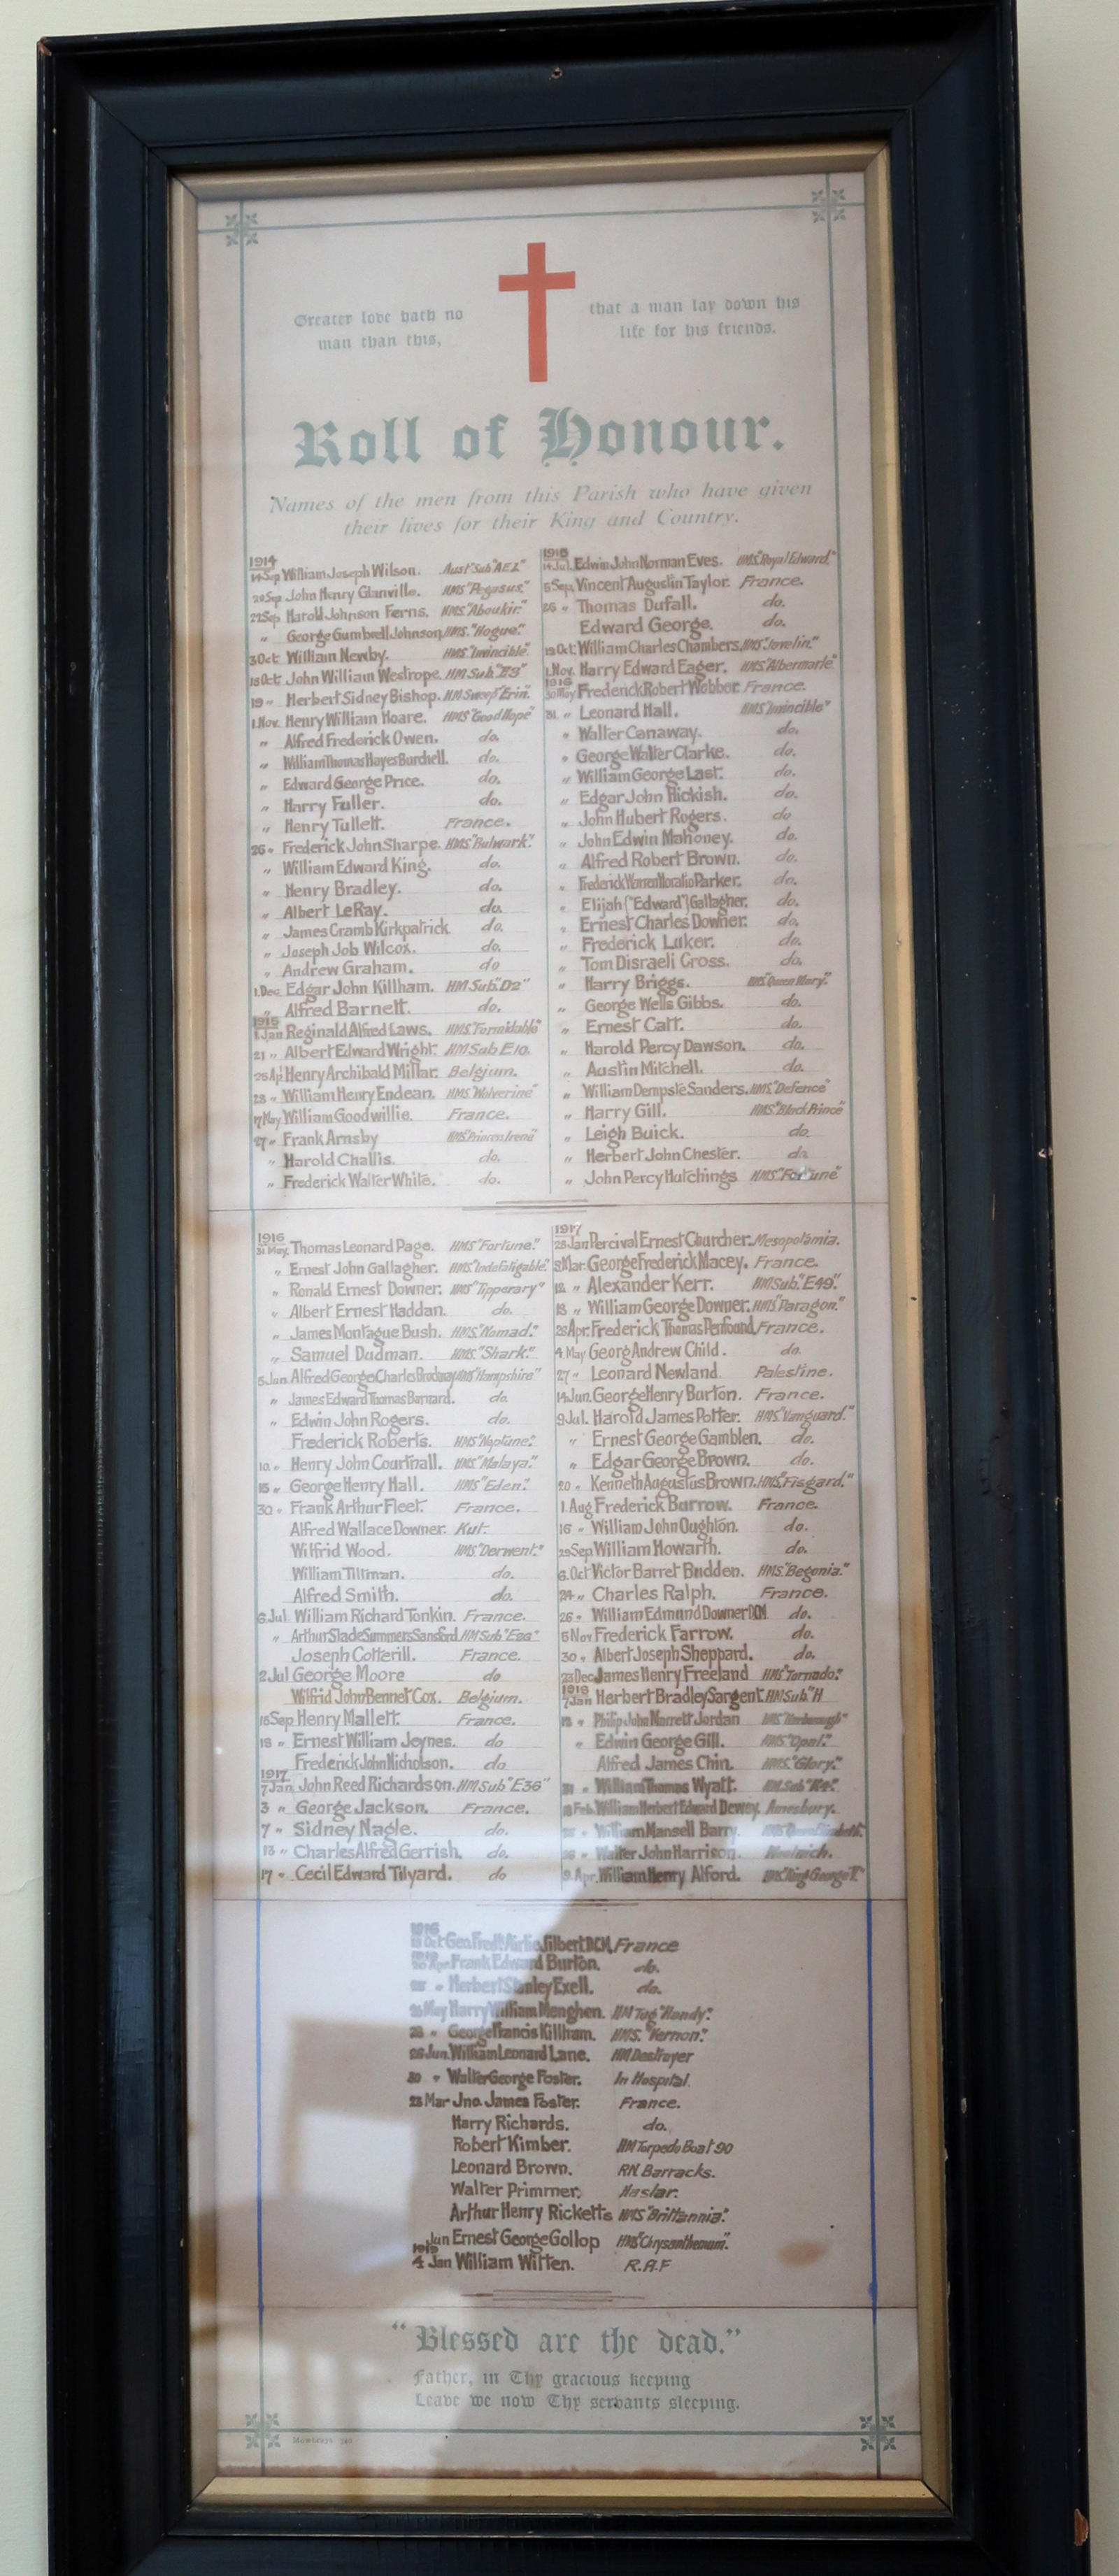 Greater love hath no
man than this,
that a man lay down his
life for his friends.
Roll of Honour.
Names of the men from this Parish who have given
their lives for their King and Country.
1914
14 Sep William Joseph Wilson. Aust Sub "AE1"
20 Sep John Henry Glanville. HMS "Pegasus."
22 Sep Harold Johnson Ferns. HMS "Aboukir."
" George Gumbrell Johnson HMS. "Hogue."
3 Oct William Newby. HMS "Invincible".
18 Oct John William Westrope. HM Sub "E3"
19 " Herbert Sidney Bishop. HM Sweep "Erin".
1 Nov. Henry William Hoare. HMS "Good Hope"
" Alfred Frederick Owen. do.
" William Thomas Hayes Burchell. do.
" Edward George Price. do.
" Harry Fuller. do.
" Henry Tullett. France.
26 " Frederick John Sharpe. HMS "Bulwark".
" William Edward King. do.
" Henry Bradley. do.
" Albert LeRay. do.
" James Cramb Kirkpatrick do.
" Joseph Job Wilcox. do.
" Andrew Graham. do
1 Dec Edgar John Killham. HM Sub. "D2"
" Alfred Barnett. do.
1915
1 Jan Reginald Alfred Laws. HMS "Formidable"
21 " Albert Edward Wright. HM Sub E10.
26 Ap Henry Archibald Millar. Belgium.
28 " William Henry Endean. HMS "Wolverine"
7 May William Goodwillie. France.
27 " Frank Arnsby HMS "Princess Irene"
" Harold Challis. do.
" Frederick Walter White. do.
1915
14 Jul. Edwin John Norman Eves. HMS "Royal Edward."
5 Sep. Vincent Augustin Taylor. France.
25 " Thomas Dufall. do.
Edward George. do.
12 Oct William Charles Chambers. HMS "Javelin."
1 Nov. Harry Edward Eager. HMS "Albermarle"
1916
30 May Frederick Robert Webber France.
31 " Leonard Hall. HMS "Invincible"
" Walter Canaway. do.
" George Walter Clarke. do.
" William George Last. do.
" Edgar John Hickish. do.
" John Hubert Rogers. do
" John Edwin Mahoney. do.
" Alfred Robert Brown. do.
" Frederick Warren Horatio Parker. do.
" Elijah ("Edward") Gallagher. do.
" Ernest Charles Downer. do.
" Frederick Luker. do.
" Tom Disraeli Cross. do.
" Harry Briggs. HMS "Queen Mary."
" George Wells Gibbs. do.
" Ernest Catt. do.
" Harold Percy Dawson. do.
" Austin Mitchell. do.
" William Dempste Sanders. HMS. "Defence"
" Harry Gill. HMS "Black Prince"
" Leigh Buick. do.
" Herbert John Chester. do
" John Percy Hutchings HMS "Fortune"
1916
31 May. Thomas Leonard Page. HMS "Fortune."
" Ernest John Gallagher. HMS. "Indefatigable."
" Ronald Ernest Downer. HMS "Tipperary"
" Albert Ernest Haddan. do.
" James Montague Bush. HMS. "Nomad."
" Samuel Dudman. HMS. "Shark."
5 Jun Alfred George Charles HMS "Hampshire"
" James Edward Thomas Barnard. do.
" Edwin John Rogers. do.
Frederick Roberts. HMS "Neptune."
10 " Henry John Courtnall. HMS. "Malaya."
15 " George Henry Hall. HMS "Eden".
30 " Frank Arthur Fleet. France.
Alfred Wallace Downer. Kut.
Wilfrid Wood. HMS. "Derwent."
William Tillman. do.
Alfred Smith. do.
6 Jul William Richard Tonkin. France.
" Arthur Slade Summers Sansford HM Sub
Joseph Cotterill. France.
2 Jul George Moore do
Wilfrid John Bennet Cox. Belgium.
15 Sep Henry Mallett. France.
18 " Ernest William Joynes. do
Frederick John Nicholson. do
1917
7 Jan. John Reed Richardson. HM Sub "E36"
3 " George Jackson. France.
7 " Sidney Nagle. do.
13 " Charles Alfred Gerrish. do.
17 " Cecil Edward Tilyard. do
1917
28 Jan Percival Ernest Churcher. Mesopotamia.
8 Mar. George Frederick Macey. France.
12 " Alexander Kerr. HM Sub. "E49".
18 " William George Downer. HMS "Paragon."
28 Apr. Frederick Thomas Penfound, France.
4 May Georg Andrew Child. do.
27 " Leonard Newland. Palestine.
14 Jun. George Henry Burton. France.
9 Jul. Harold James Potter. HMS. "Vanguard."
" Ernest George Gamblen. do.
" Edgar George Brown. do.
20 " Kenneth Augustus Brown. HMS. "Fisgard."
1 Aug Frederick Burrow. France.
16 " William John Oughton. do.
29 Sep William Howarth. do.
6. Oct Victor Barret Budden. HMS. "Begonia."
24 " Charles Ralph. France.
26 " William Edmund Downer DCM do.
5 Nov Frederick Farrow. do.
30 " Albert Joseph Sheppard. do.
23 Dec James Henry Freeland HMS "Tornado."
1918
7 Jan Herbert Bradley Sargent. HM Sub. "H
12 " Philip John Narrett Jordan HMS "Narborough"
" Edwin George Gill. HMS. "Opal."
Alfred James Chin. HMS. "Glory."
31 " William Thomas Wyatt. HM Sub "K4."
18 Feb. William Herbert Edward Dewey. Amesbury.
" William Mansell Barry. HMS "Queen Elizabeth."
26 " Walter John Harrison. Woolwich.
9 Apr. William Henry Alford. HMS "King George V."
1916
Oct Geo Fredk Airlie Silbert DCM. France
1918
Apr Frank Edward Burton. do.
" Herbert Stanley Exell. do.
26 May Harry William Menghen. HM Tug "Handy".
28 " George Francis Killham. HMS. "Vernon."
26 Jun. William Leonard Lane. HM Destroyer
30 " Walter George Foster. In Hospital.
23 Mar Jno. James Foster. France.
Harry Richards. do.
Robert Kimber. HM Torpedo Boat 90
Leonard Brown. RN. Barracks.
Walter Primmer. Haslar.
Arthur Henry Ricketts HMS "Brittannia."
Jun Ernest George Gollop HMS "Chrysanthemum".
1919
4 Jan William Witten. R.A.F
"Blessed are the dead."
Father, in Thy gracious keeping
Leave we now Thy servants sleeping.